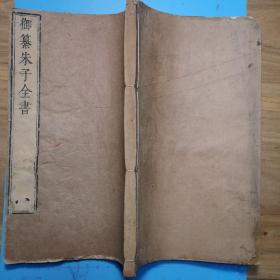 御纂朱子全書